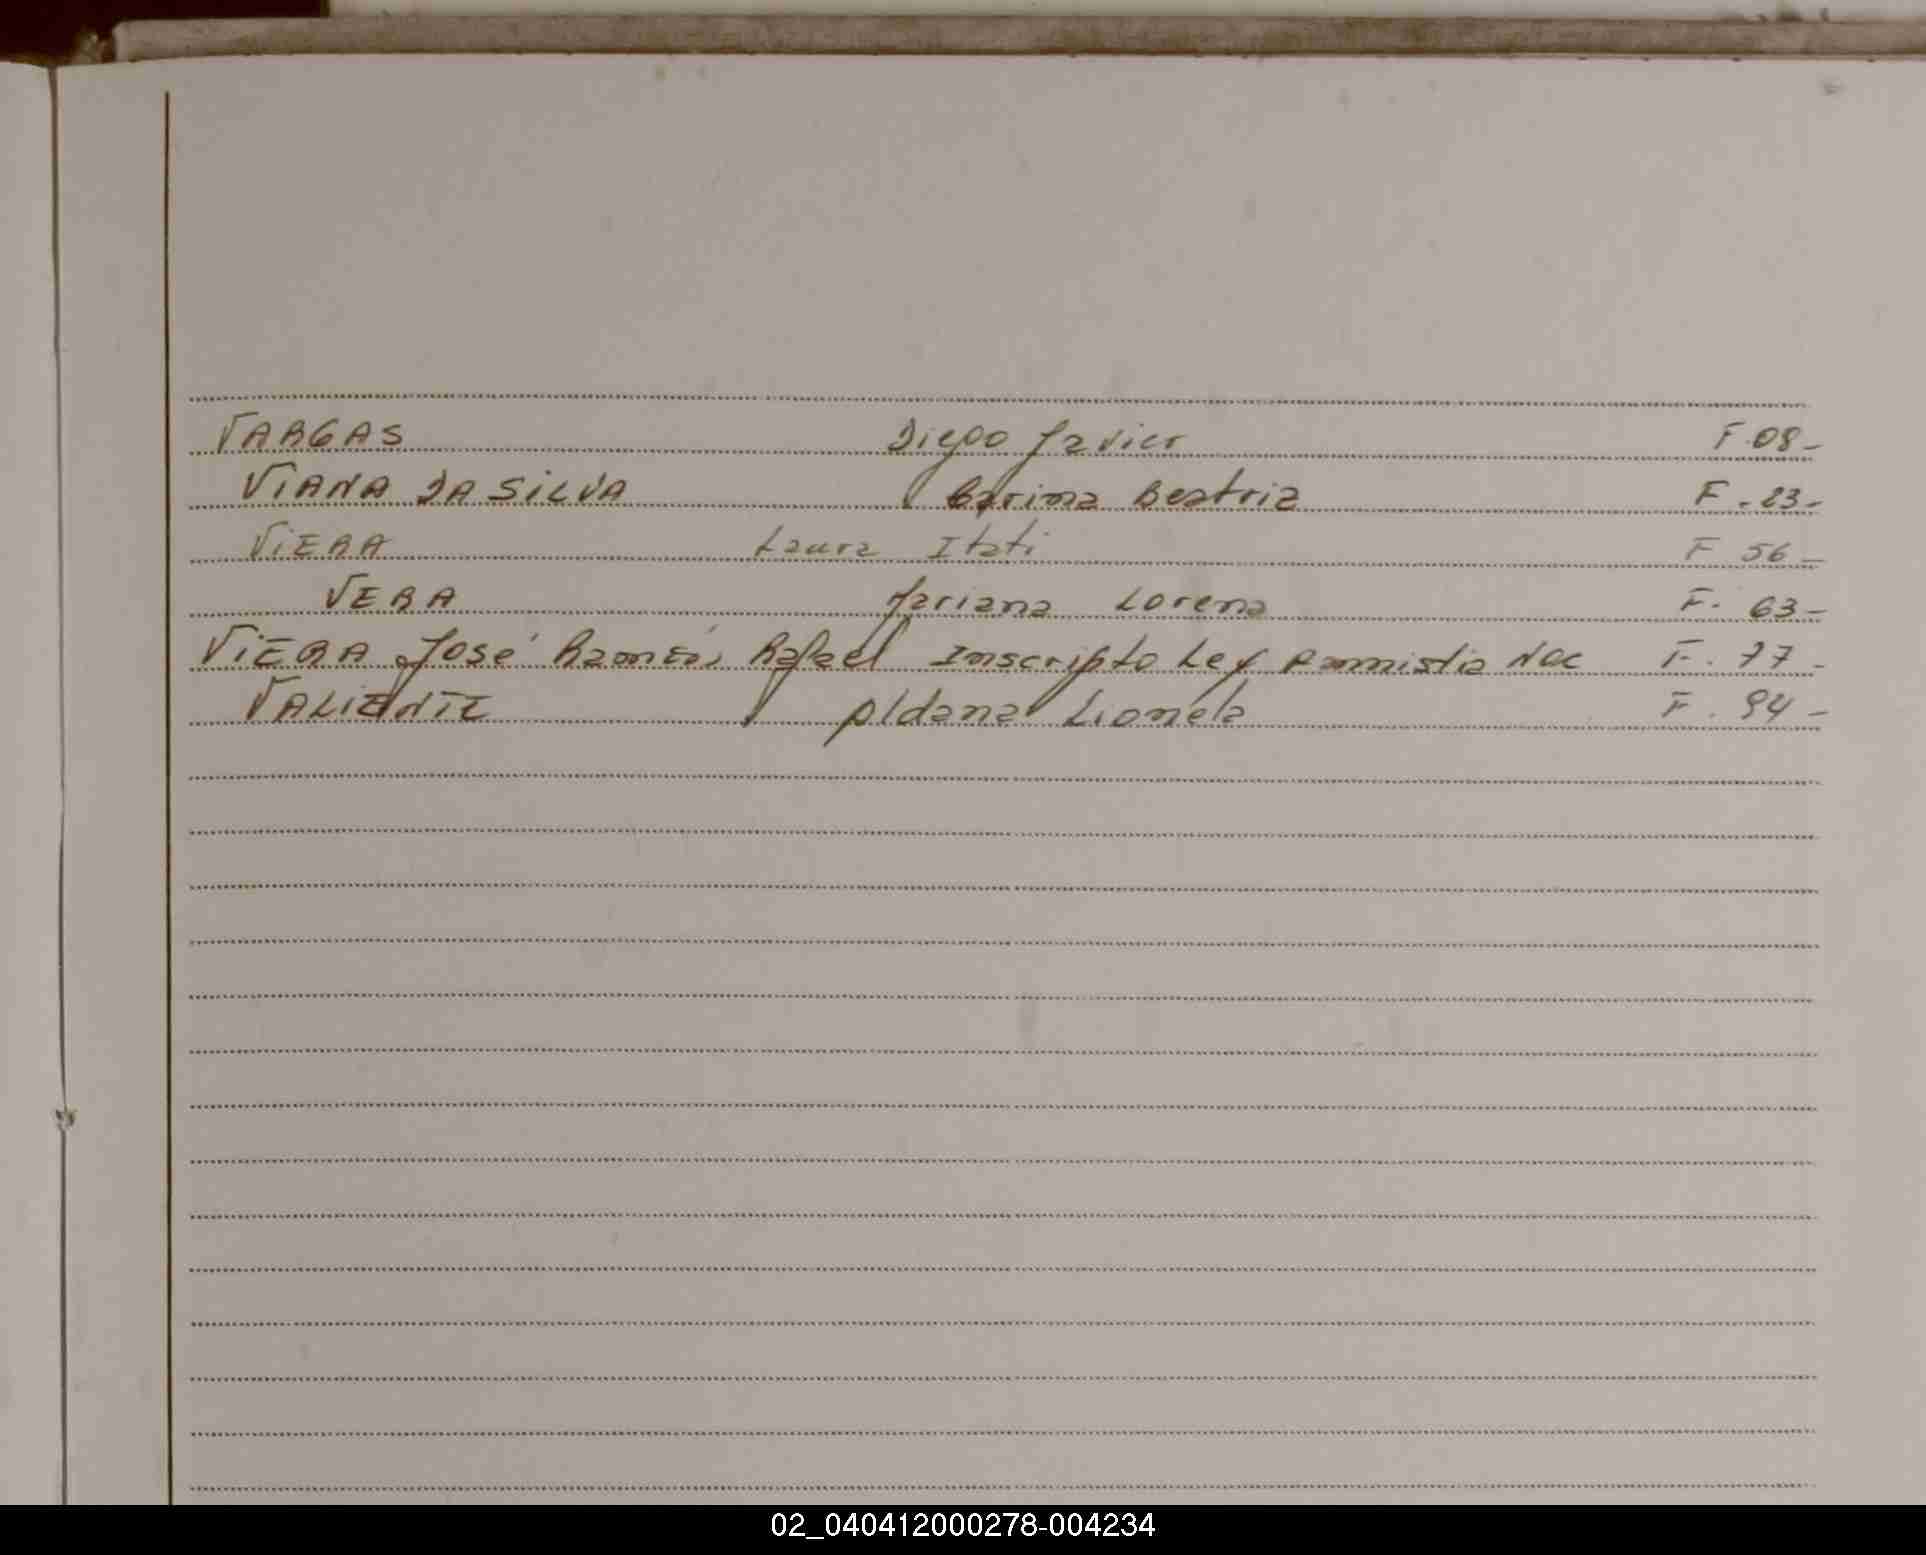 VARGAS Diego Javier F.08-
VIANA DA SILVA Carina Beatriz F.23-
VIERA Laura Itati F 56-
VERA Mariana Lorena F. 63-
VIERA José Ramón Rafael Inscripto Ley Amnistia Nac F. 77-
VALIENTE Aldana Lionela F. 94-
02_040412000278-004234